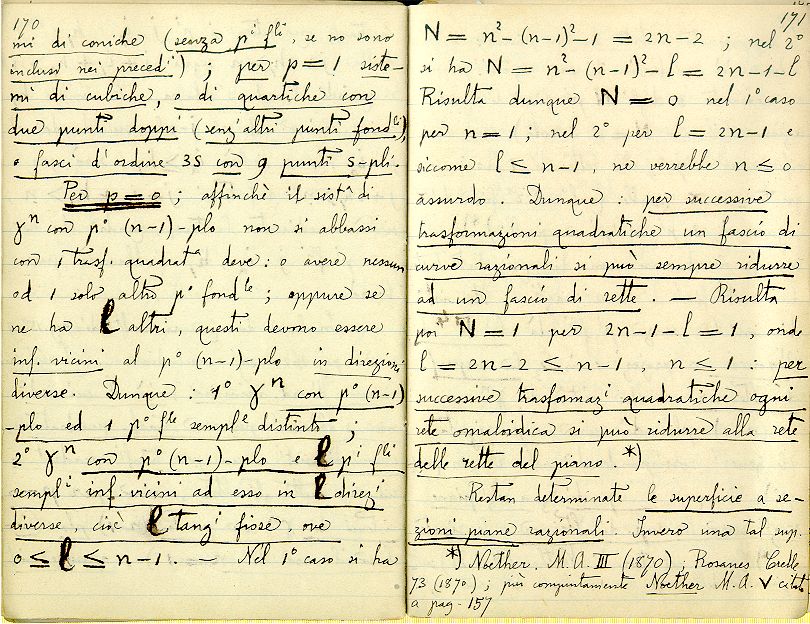 170
mi di coniche (senza pⁱ fˡⁱ, se no sono
inclusi nei precedⁱ) ; per p = 1 siste-
mi di cubiche, o di quartiche con
due punti doppi (senz'altri punti fondˡⁱ),
o fasci d'ordine 3s con 9 punti s-pli.
Per p = 0 ; affinchè il sistᵃ di
γⁿ con pᵒ (n-1)-plo non si abbassi
con 1 trasf. quadratᵃ deve : o avere nessun
od 1 solo altro pᵒ fondˡᵉ ; oppure se
ne ha l altri, questi devono essere
inf. vicini al pᵒ (n-1)-plo in direzioni
diverse. Dunque : 1º γⁿ con pᵒ (n-1)
-plo ed 1 pᵒ fˡᵉ semplᵉ distinti ;
2º γⁿ con pᵒ (n-1)-plo e l pⁱ fˡⁱ
semplⁱ inf. vicini ad esso in l direzⁱ
diverse, cioè l tangⁱ fisse, ove
0 ≤ l ≤ n-1. — Nel 1º caso si ha
171
N = n² - (n-1)² - 1 = 2n-2 ; nel 2º
si ha N = n² - (n-1)² - l = 2n-1-l
Risulta dunque N = 0 nel 1º caso
per n = 1 ; nel 2º per l = 2n-1 e
siccome l ≤ n-1, ne verrebbe n ≤ 0
assurdo. Dunque : per successive
trasformazioni quadratiche un fascio di
curve razionali si può sempre ridurre
ad un fascio di rette. — Risulta
poi N = 1 per 2n-1-l = 1, onde
l = 2n-2 ≤ n-1, n ≤ 1 : per
successive trasformazⁱ quadratiche ogni
rete omaloidica si può ridurre alla rete
delle rette del piano. *)
Restan determinate le superficie a se-
zioni piane razionali. Invero una tal sup.
*) Noether. M.A. III (1870) ; Rosanes Crelle
73 (1870) ; più compiutamente Noether M.A. V citato
a pag. 157